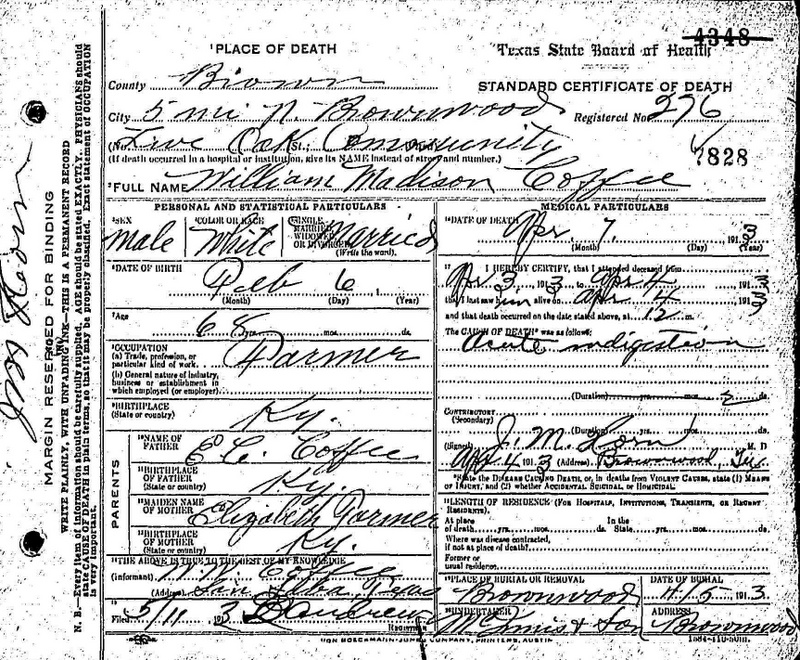 4348
PLACE OF DEATH
Texas State Board of Health
County Brown
STANDARD CERTIFICATE OF DEATH
City 5 mi N. Brownwood
Registered No. 276
(No. Live Oak St.; Community
(If death occurred in a hospital or institution, give its NAME instead of street and number.)
7828
FULL NAME William Madison Coffee
PERSONAL AND STATISTICAL PARTICULARS
SEX Male
COLOR OR RACE White
SINGLE, MARRIED, WIDOWED OR DIVORCED Married
(Write the word).
DATE OF BIRTH Feb 6, 1
(Month) (Day) (Year)
Age 68 yrs. mos. ds.
OCCUPATION
(a) Trade, profession, or particular kind of work Farmer
(b) General nature of industry, business or establishment in which employed (or employer).
BIRTHPLACE
(State or country) Ky.
PARENTS
NAME OF FATHER E. C. Coffee
BIRTHPLACE OF FATHER
(State or country) Ky.
MAIDEN NAME OF MOTHER Elizabeth Farmer
BIRTHPLACE OF MOTHER
(State or country) Ky.
THE ABOVE IS TRUE TO THE BEST OF MY KNOWLEDGE
(Informant) Coffee
(Address)
Filed 5/11 1913 Andrews
Registrar
MEDICAL PARTICULARS
DATE OF DEATH Apr 7 1913
(Month) (Day) (Year)
I HEREBY CERTIFY, that I attended deceased from
Apr 3, 1913 to Apr 4 1913
that I last saw him alive on Apr 4 1913
and that death occurred on the date stated above, at 12 m.
The CAUSE OF DEATH was as follows:
Acute indigestion
(Duration) yrs. mos. ds.
CONTRIBUTORY
(Secondary)
(Duration) yrs. mos. ds.
(Signed) J. M. Horn M. D
Apr 4 1913 (Address) Brownwood, Tex.
State the DISEASE CAUSING DEATH, or, in deaths from VIOLENT CAUSES, state (1) MEANS OF INJURY, and (2) whether ACCIDENTAL SUICIDAL or HOMICIDAL.
LENGTH OF RESIDENCE (FOR HOSPITALS, INSTITUTIONS, TRANSIENTS, OR RECENT RESIDENTS).
At place of death yrs. mos. ds. In the State yrs. mos. ds.
Where was disease contracted, if not at place of death?
Former or usual residence
PLACE OF BURIAL OR REMOVAL Brownwood
DATE OF BURIAL 4/5 1913
UNDERTAKER McInnis & Son
ADDRESS Brownwood
VON BOECKMANN-JONES COMPANY, PRINTERS, AUSTIN
MARGIN RESERVED FOR BINDING
WRITE PLAINLY, WITH UNFADING INK—THIS IS A PERMANENT RECORD
N. B.—Every item of information should be carefully supplied. AGE should be stated EXACTLY. PHYSICIANS should state CAUSE OF DEATH in plain terms, so that it may be properly classified. Exact statement of OCCUPATION is very important.